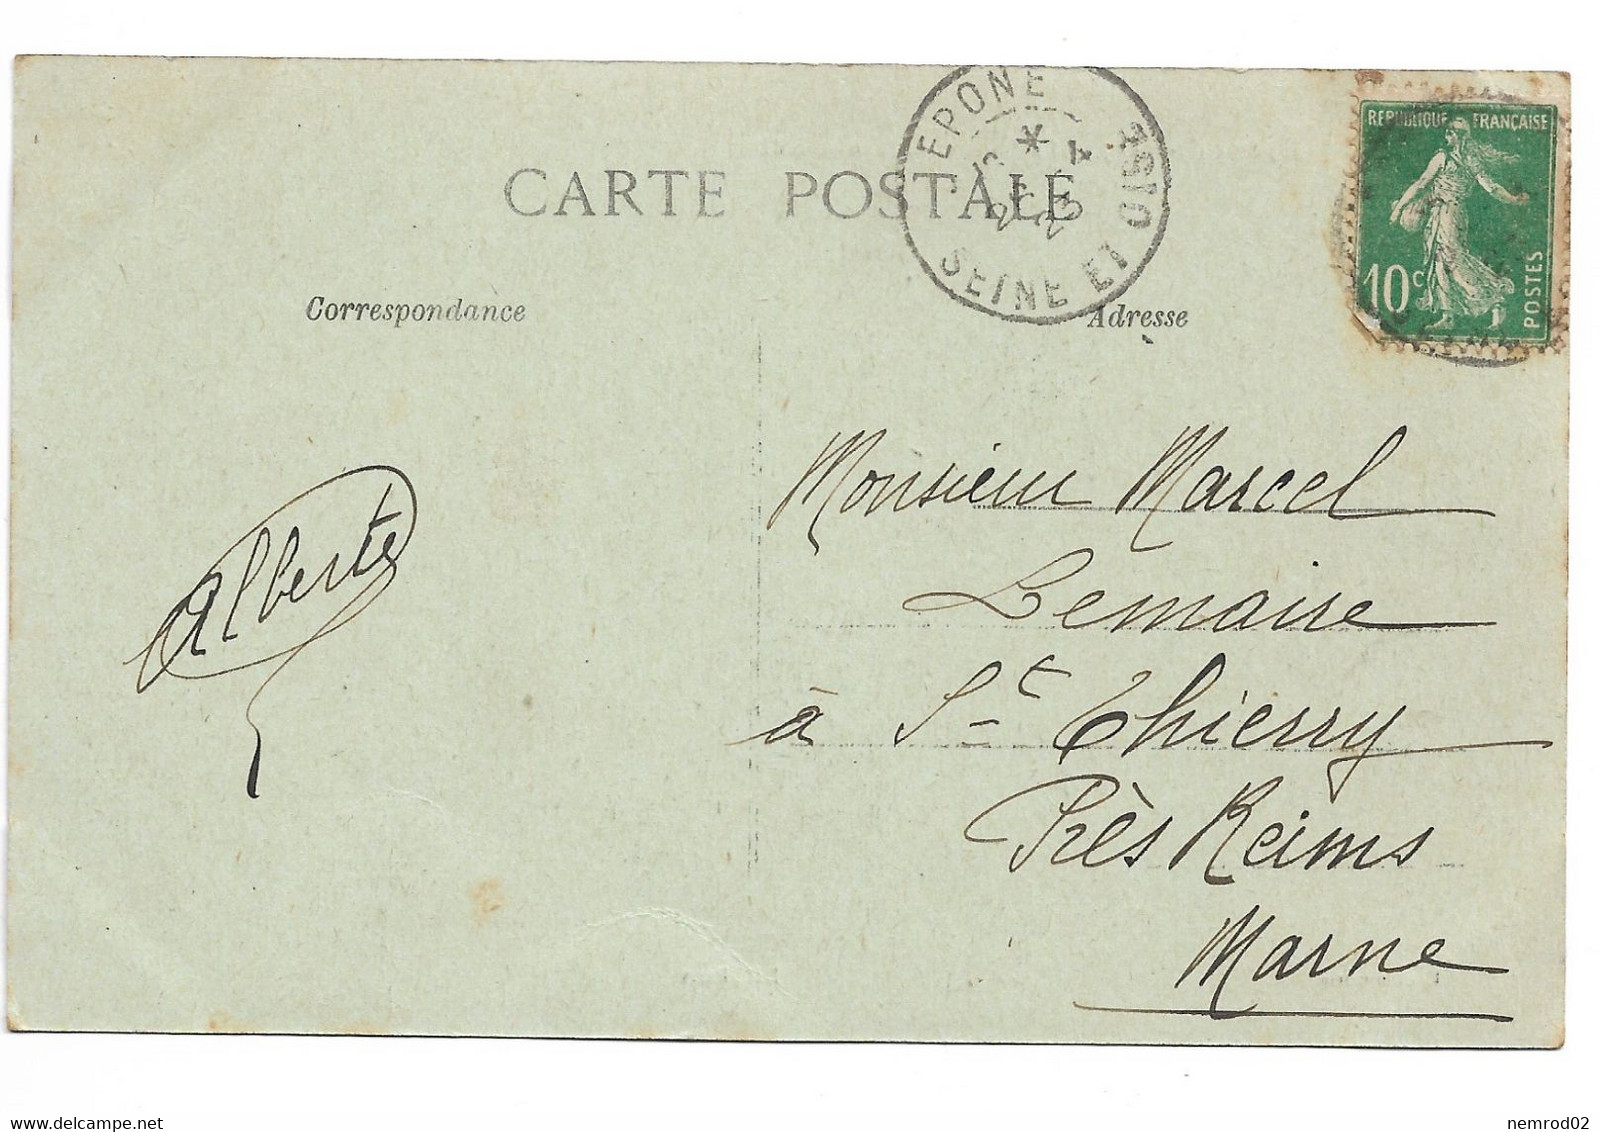 CARTE POSTALE
EPONE
SEINE ET OISE
REPUBLIQUE FRANÇAISE
10c
POSTES
Correspondance
Adresse
Alberte
Monsieur Marcel
Lemaire
à St Thierry
Près Reims
Marne
www.delcampe.net
nemrod02